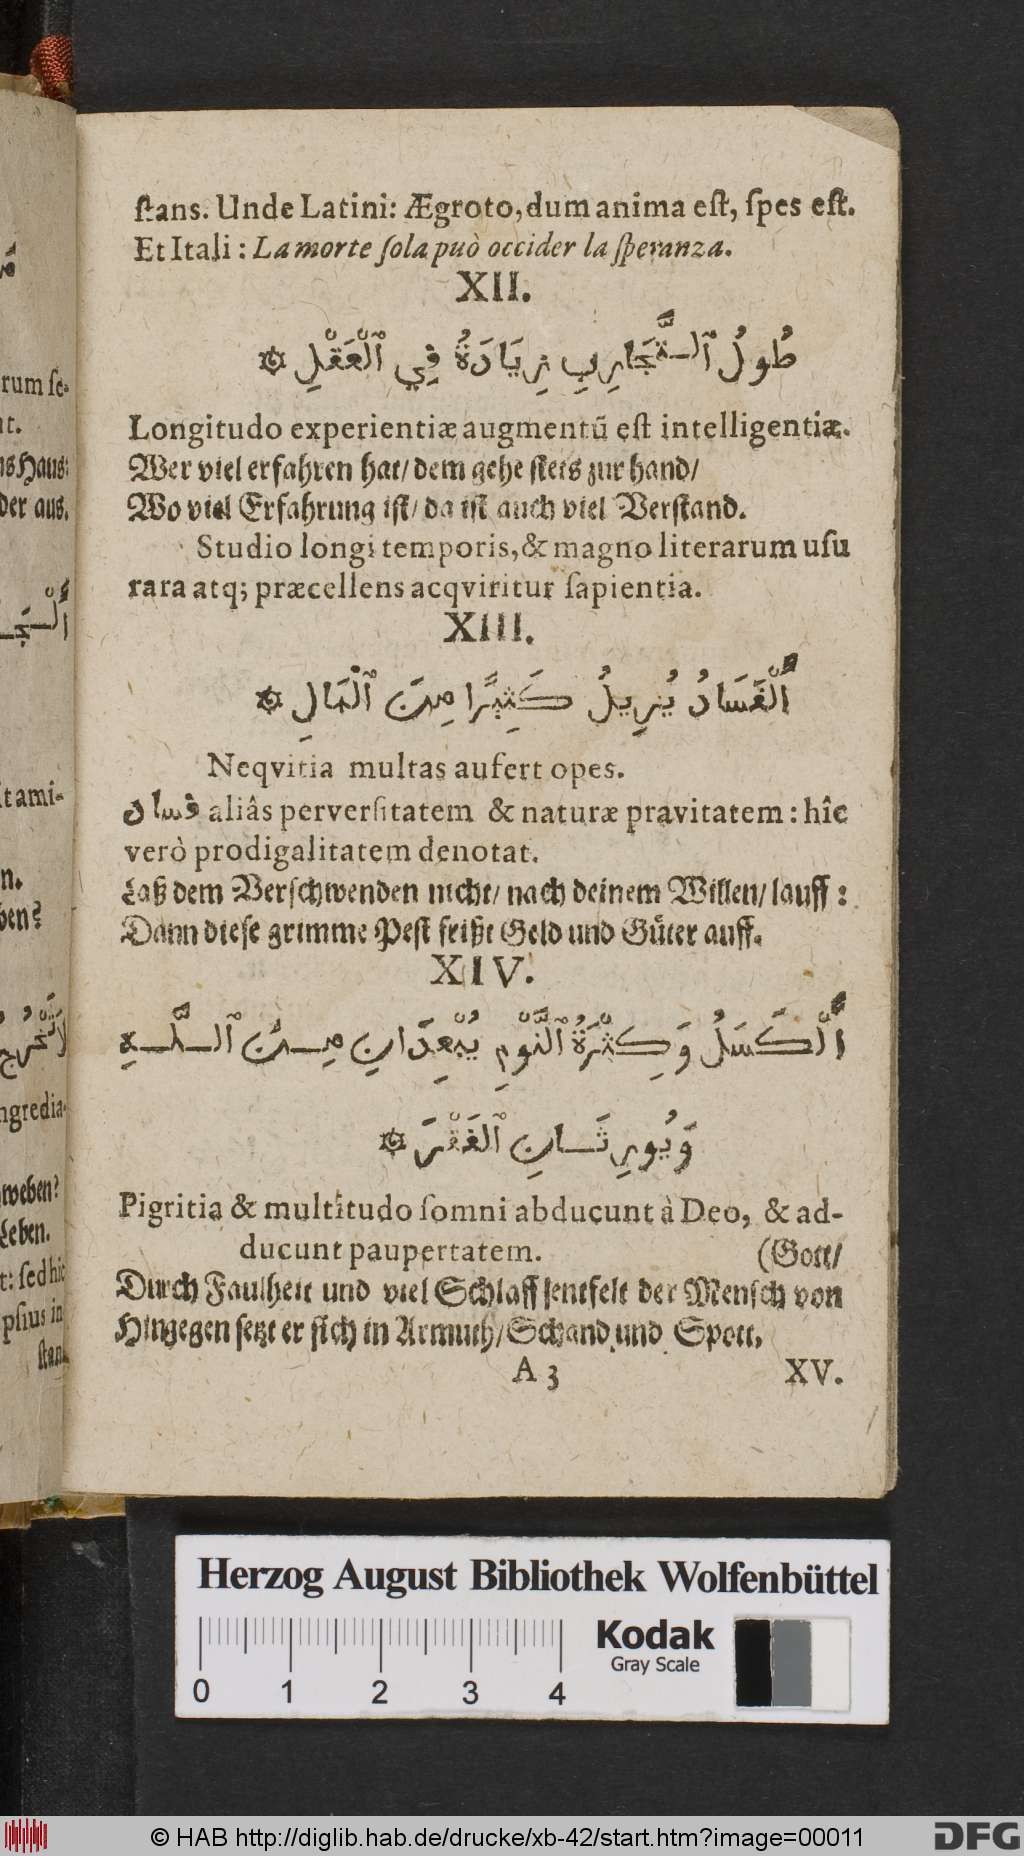 ſtans. Unde Latini: Ægroto, dum anima eſt, ſpes eſt.
Et Itali: La morte ſola può occider la ſperanza.
XII.
طُولُ ٱلتَّجَارِبِ زِيَادَةُ فِي ٱلْعَقْلِ ۞
Longitudo experientiæ augmentũ eſt intelligentiæ.
Wer viel erfahren hat/ dem gehe ſtets zur hand/
Wo viel Erfahrung iſt/ da iſt auch viel Verſtand.
Studio longi temporis, & magno literarum uſu
rara atq; præcellens acqviritur ſapientia.
XIII.
أَلْفَسَادُ يُزِيلُ كَثِيرًا مِنَ ٱلْمَالِ ۞
Neqvitia multas aufert opes.
فساد aliâs perverſitatem & naturæ pravitatem: hîc
verò prodigalitatem denotat.
Laß dem Verſchwenden nicht/ nach deinem Willen/ lauff:
Dann dieſe grimme Peſt frißt Geld und Güter auff.
XIV.
أَلْكَسَلُ وَكِثْرَةُ ٱلنَّوْمِ يُبْعِدَانِ مِنَ ٱللَّهِ
وَيُورِثَانِ ٱلْفَقْرَ ۞
Pigritia & multitudo ſomni abducunt à Deo, & ad-
ducunt paupertatem. (Gott/
Durch Faulheit und viel Schlaff entfelt der Menſch von
Hingegen ſetzt er ſich in Armuth/ Schand und Spott.
A 3 XV.
rum ſe-
ns Haus:
der aus.
it ami-
n.
ben?
ngredia-
weben?
Leben.
t: ſed hic
pſius in
ſtan
Herzog August Bibliothek Wolfenbüttel
0 1 2 3 4
Kodak
Gray Scale
© HAB http://diglib.hab.de/drucke/xb-42/start.htm?image=00011
DFG